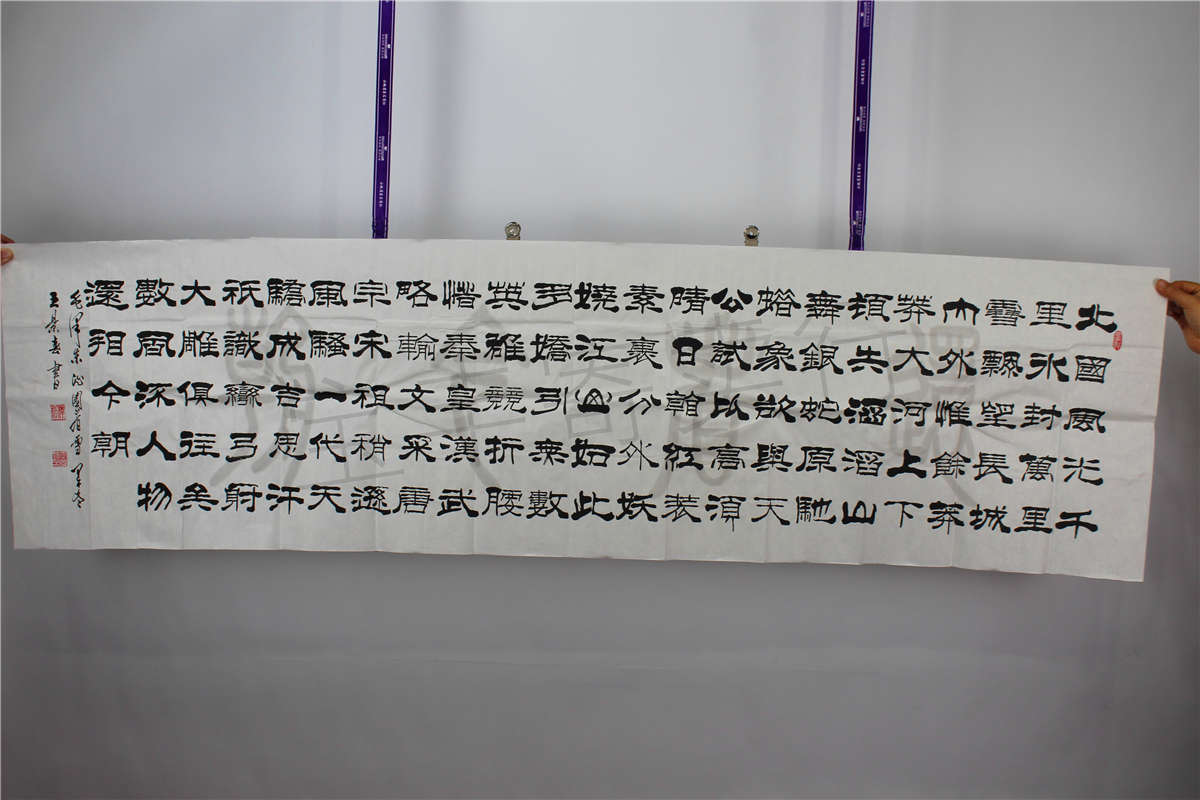 北國風光千
里氷封萬里
雪飄望長城
內外惟餘莽
莽大河上下
頓失滔滔山
舞銀蛇原馳
蜡象欲與天
公試比高須
晴日紅裝
素裹分外妖
嬈江山如此
多嬌引無數
英雄競折腰
惜秦皇漢武
略輸文采唐
宗宋祖稍遜
風騷一代天
驕成吉思汗
祇識彎弓射
大雕俱往矣
數風流人物
還今朝
毛澤東沁園春雪
王景春書